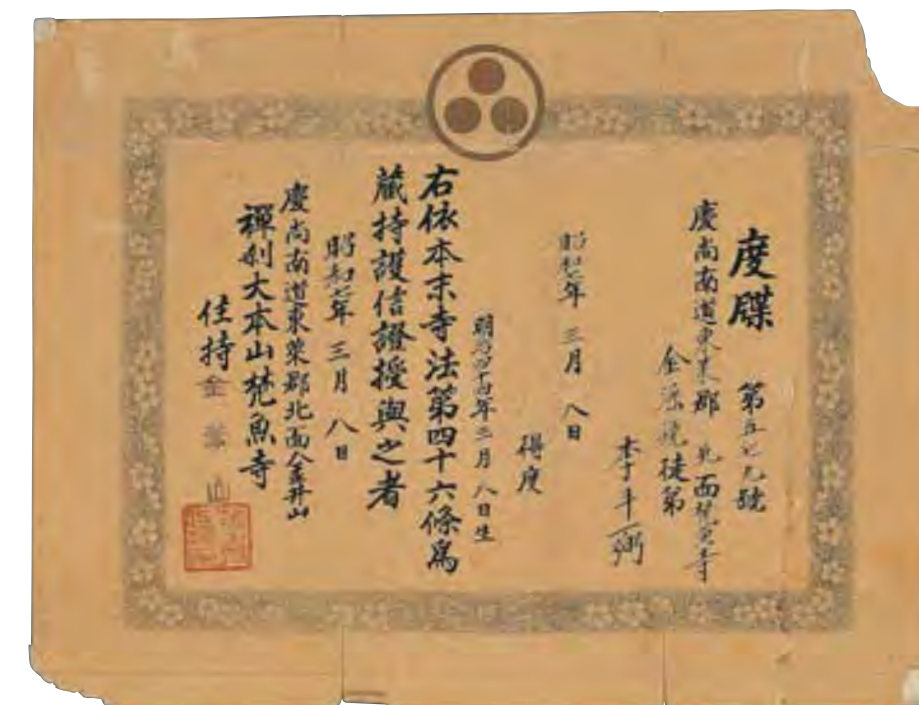 度牒 第五七九號
慶尚南道東萊郡 北面梵魚寺
金 徒弟
李斗
昭和七年 三月 八日
得度
明治四十四年三月八日生
右依本末寺法第四十六條爲
藏持護信證授與之者
昭和七年 三月 八日
慶尚南道東萊郡北面金井山
禪刹大本山梵魚寺
住持金 山